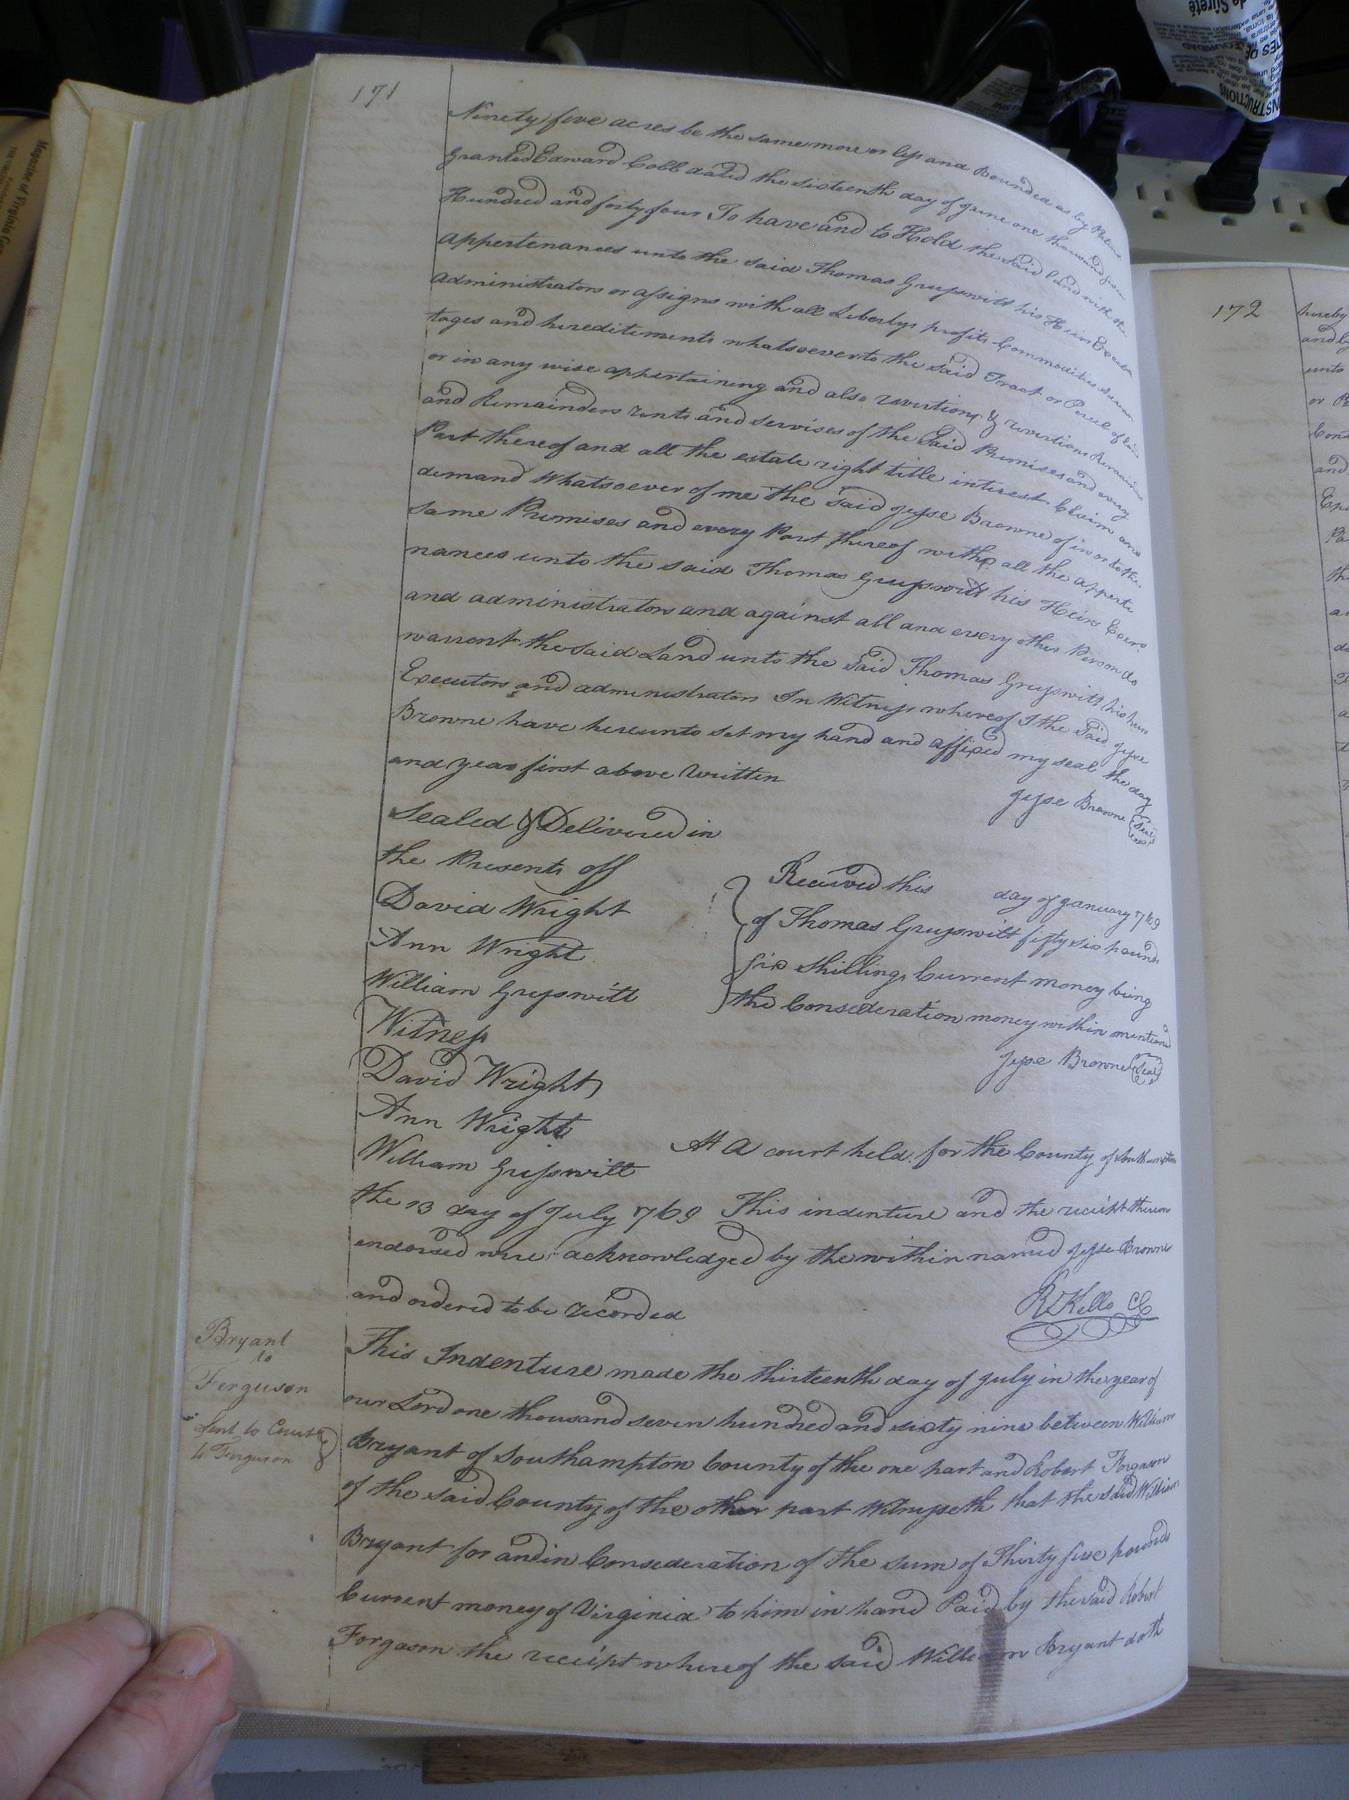 171
Ninety five acres be the same more or less and Bounded as by Patent
Granted Edward Cobb dated the sixteenth day of June one thousand seven
Hundred and forty four To have and to Hold the said land with the
appertenances unto the said Thomas Gresswitt his Heirs Executors
administrators or assigns with all Libertys profits Commodities
tages and hereditements whatsoever to the said Tract or Parcel of land
or in any wise appertaining and also revertions & revertions Remainder
and Remainders rents and servises of the said Premises and every
Part thereof and all the estate right title interest Claim and
demand Whatsoever of me the said Jesse Browne of in or to the
same Premises and every Part thereof with all the apperte
nances unto the said Thomas Gresswitt his Heirs Exers
and administrators and against all and every other Person do
warrent the said Land unto the said Thomas Gresswitt his heirs
Executors and administrators In Witness whereof I the said Jesse
Browne have hereunto set my hand and affixed my seal the day
and year first above Written
Jesse Browne Seal
Sealed & Delivered in
the Presents off
David Wright
Ann Wright
William Gresswitt
Received this day of January 1769
of Thomas Gresswitt fifty six pounds
six shillings Current money being
the Consederation money within mentiond
Jesse Browne Seal
Witness
David Wright
Ann Wright
William Gresswitt
At A court held for the County of Southampton
the 13 day of July 1769 This indenture and the reciept thereon
endorsed were acknowledged by the within named Jesse Browne
and ordered to be recorded
R Kello CC
Bryant
to
Ferguson
Sent to Court
Ferguson
This Indenture made the thirteenth day of July in the year of
our Lord one thousand seven hundred and sixty nine between William
Bryant of Southampton County of the one part and Robert Forgason
of the said County of the other part Witnesseth that the said William
Bryant for and in Consederation of the sum of Thirty five pounds
Current money of Virginia to him in hand Paid by the said Robert
Forgason the reciept whereof the said William Bryant doth
172
hereby
and by
unto
and
Magazine of Virginia
INSTRUCTIONS